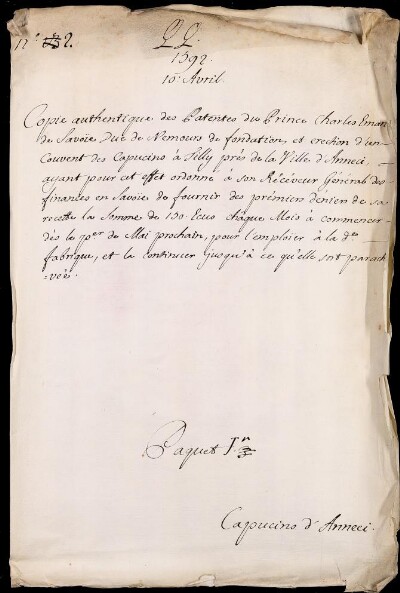 N.° 2.
LL.
1592.
10e Avril.
Copie authentique des Patentes du Prince Charles Eman.
de Savoïe Duc de Nemours de fondation, et erection d'un
Couvent des Capucins à Silly prés de la Ville d'Anneci
ayant pour cet effet ordonné à son Récéveur Général des
finances en Savoïe de fournir des prémiers déniers de sa
recette la somme de 130. Ecus châque Mois à commencer
dés le per de Mai prochain, pour l'emploïer à la de
fabrique, et la continuer jusqu'à ce qu'elle soit parach
=vée.
Paquet 1.er
Capucins d'Anneci.